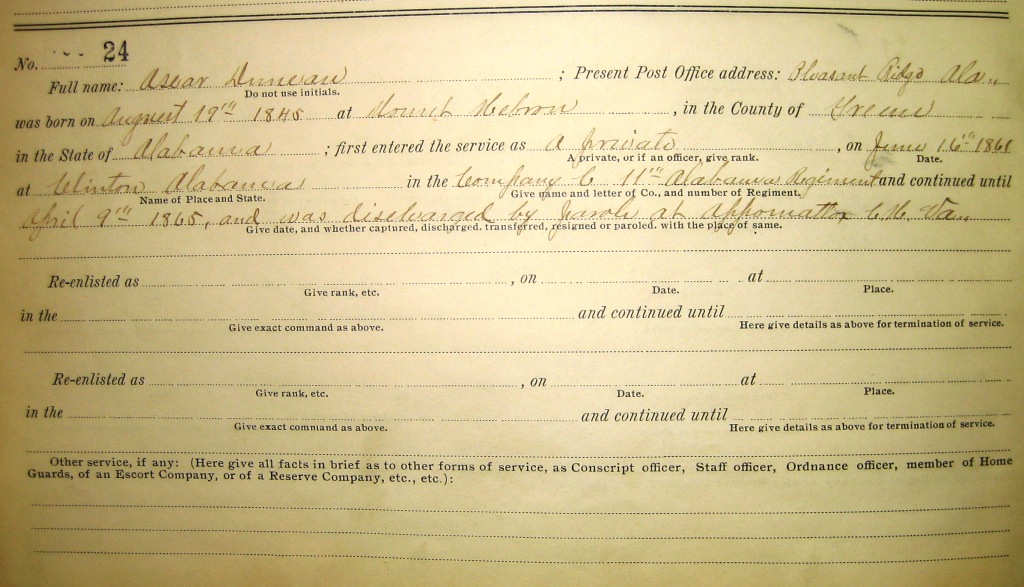 No. 24
Full name: Oscar Duncan ; Present Post Office address: Pleasant Ridge Ala.
Do not use initials.
was born on August 19th 1845 at Mount Hebron , in the County of Greene
in the State of Alabama ; first entered the service as A private , on June 16th 1861
A private, or if an officer, give rank. Date.
at Clinton Alabama in the Company C 11th Alabama Regiment and continued until
Name of Place and State. Give name and letter of Co., and number of Regiment.
April 9th 1865, and was discharged by parole at Appomattox C.H. Va.
Give date, and whether captured, discharged. transferred, resigned or paroled. with the place of same.
Re-enlisted as , on at
Give rank, etc. Date. Place.
in the and continued until
Give exact command as above. Here give details as above for termination of service.
Re-enlisted as , on at
Give rank, etc. Date. Place.
in the and continued until
Give exact command as above. Here give details as above for termination of service.
Other service, if any: (Here give all facts in brief as to other forms of service, as Conscript officer, Staff officer, Ordnance officer, member of Home
Guards, of an Escort Company, or of a Reserve Company, etc., etc.):